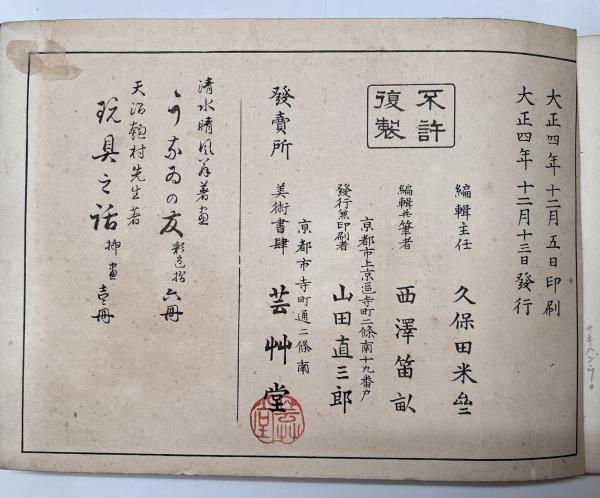 大正四年十二月五日印刷
大正四年十二月十三日發行
不許
復製
編輯主任 久保田米僊
編輯共筆者 西澤笛畝
京都市上京區寺町二條南十九番戸
發行兼印刷者 山田直三郎
京都市寺町通二條南
發賣所 美術書肆 芸艸堂
芸艸堂
清水晴風翁著畫
うなゐの友 彩色摺 六冊
天沼匏村先生著
玩具之話 挿畫 壹冊